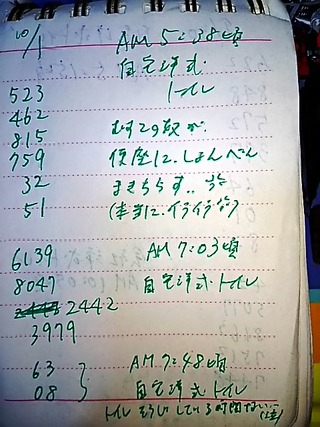 10/1 AM 5:38頃
自宅洋式
523 トイレ
462
815 むすこの奴が
759 便座に、しょんべん
32 まきちらす..
51 (本当に、イライラ
6139 AM 7:03頃
8047 自宅洋式トイレ
2442
3979
63 AM 7:48頃
08 自宅洋式トイレ
トイレそうじしている時間ない…